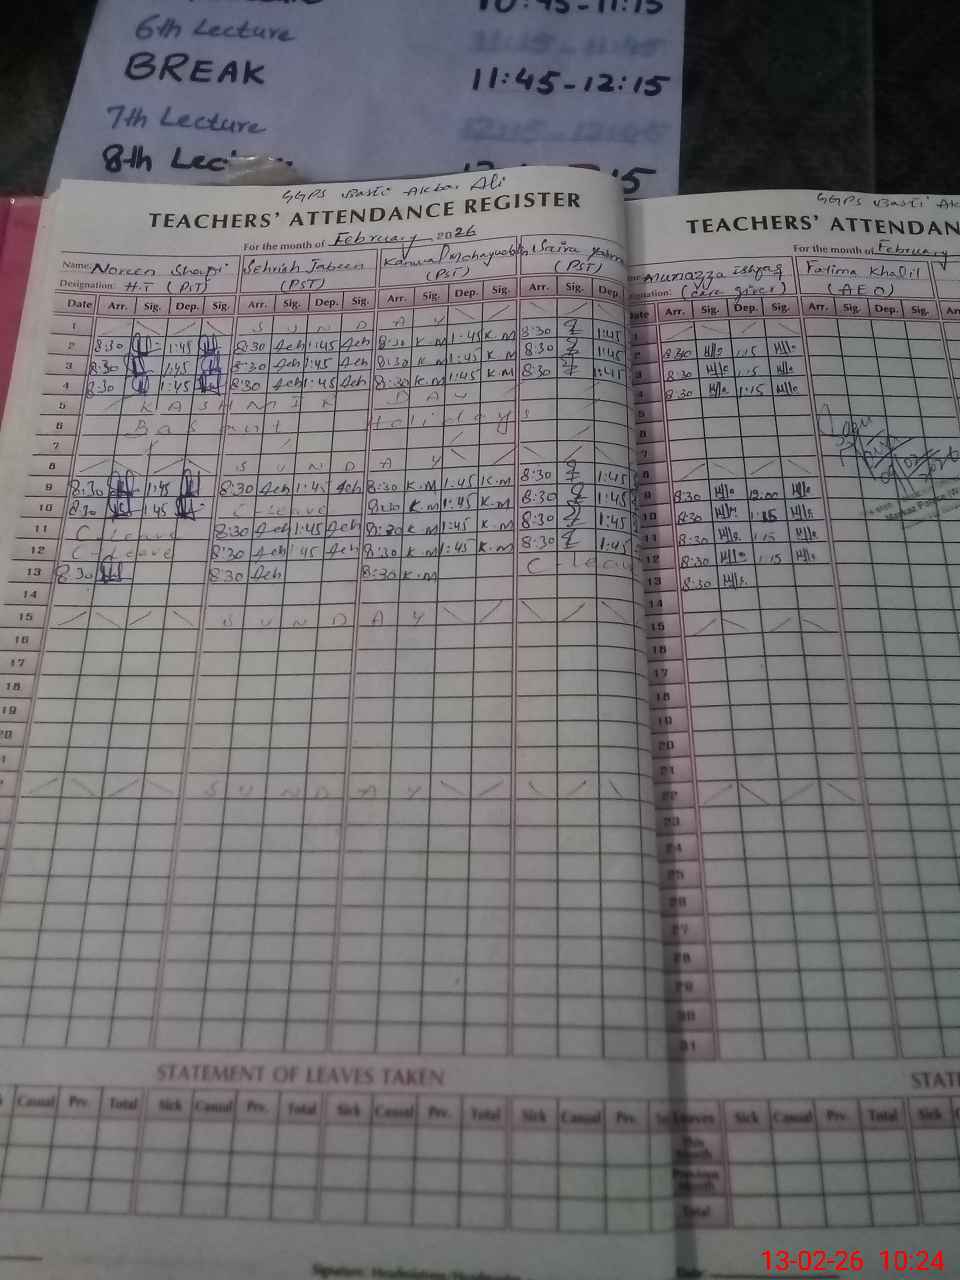 10:45-11:15
6th Lecture 11:15-11:45
BREAK 11:45-12:15
7th Lecture 12:15-12:45
8th Lec
GGPS Basti Akbar Ali
TEACHERS' ATTENDANCE REGISTER
For the month of February 2026
Name: Noreen Sehrish Jabeen Kanwal Saira
Designation: H.T (PST) (PST) (PST) (PST)
Date Arr. Sig. Dep. Sig. Arr. Sig. Dep. Sig. Arr. Sig. Dep. Sig. Arr. Sig. Dep
1 S U N D A Y
2 8:30 1:45 8:30 1:45 8:30 K.M 1:45 K.M 8:30 1:45
3 8:30 1:45 8:30 1:45 8:30 K.M 1:45 K.M 8:30 1:45
4 8:30 1:45 8:30 1:45 8:30 K.M 1:45 K.M 8:30 1:45
5 K A S H M I R D A Y
6 Basant Holidays
7
8 S U N D A Y
9 8:30 1:45 8:30 1:45 8:30 K.M 1:45 K.M 8:30 1:45
10 8:30 1:45 C-Leave 8:30 K.M 1:45 K.M 8:30 1:45
11 C-Leave 8:30 1:45 8:30 K.M 1:45 K.M 8:30 1:45
12 C-Leave 8:30 1:45 8:30 K.M 1:45 K.M 8:30 1:45
13 8:30 8:30 8:30 K.M C-Leave
14
15 S U N D A Y
16
17
18
19
20
S U N D A Y
STATEMENT OF LEAVES TAKEN
Casual Prv. Total Sick Casual Prv. Total Sick Casual Prv. Total Sick Casual Prv.
GGPS Basti Ak
TEACHERS' ATTENDAN
For the month of February
Munazza Ishfaq Fatima Khalil
(care giver) (AEO)
Date Arr. Sig. Dep. Sig. Arr. Sig. Dep. Sig. Arr
1
2 8:30 1:15
3 8:30 1:15
4 8:30 1:15
5
6
7
8
9 8:30 12:00
10 8:30 1:15
11 8:30 1:15
12 8:30 1:15
13 8:30
14
15
16
17
18
19
20
21
22
23
24
25
26
27
28
29
30
31
STATE
Leaves Sick Casual Prv. Total Sick
This Month
Previous Month
Total
13-02-26 10:24